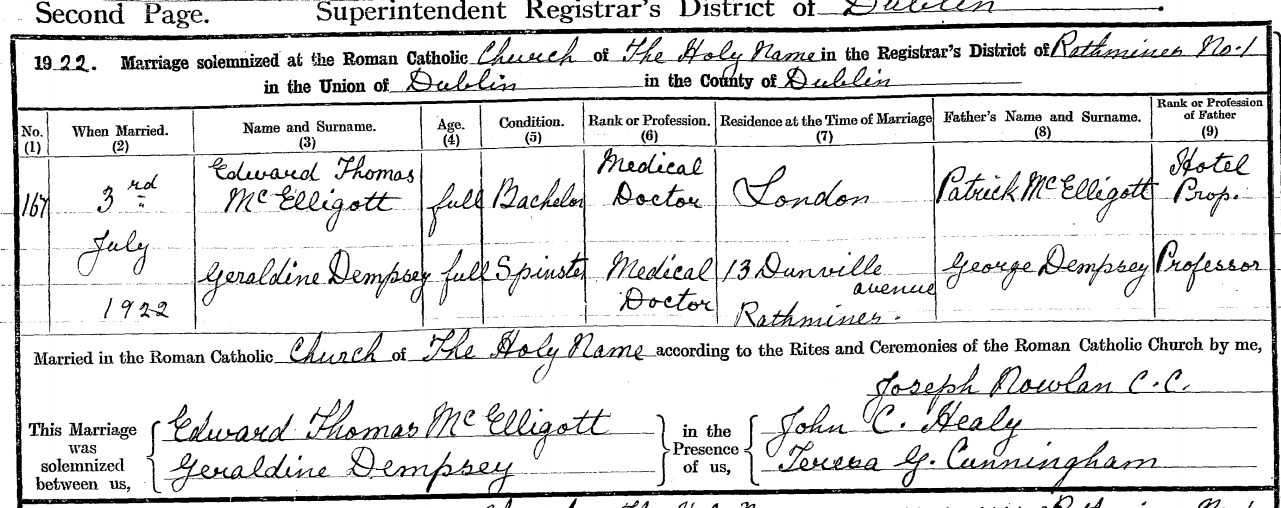 Second Page. Superintendent Registrar's District of Dublin.
1922. Marriage solemnized at the Roman Catholic Church of The Holy Name in the Registrar's District of Rathmines No. 1
in the Union of Dublin in the County of Dublin
No. (1) When Married. (2) Name and Surname. (3) Age. (4) Condition. (5) Rank or Profession. (6) Residence at the Time of Marriage (7) Father's Name and Surname. (8) Rank or Profession of Father (9)
167 3rd Edward Thomas McElligott full Bachelor Medical Doctor London Patrick McElligott Hotel Prop.
July
1922 Geraldine Dempsey full Spinster Medical Doctor 13 Dunville avenue Rathmines. George Dempsey Professor
Married in the Roman Catholic Church of The Holy Name according to the Rites and Ceremonies of the Roman Catholic Church by me,
Joseph Nowlan C.C.
This Marriage was solemnized between us, Edward Thomas McElligott
Geraldine Dempsey
in the Presence of us, John C. Healy
Teresa G. Cunningham